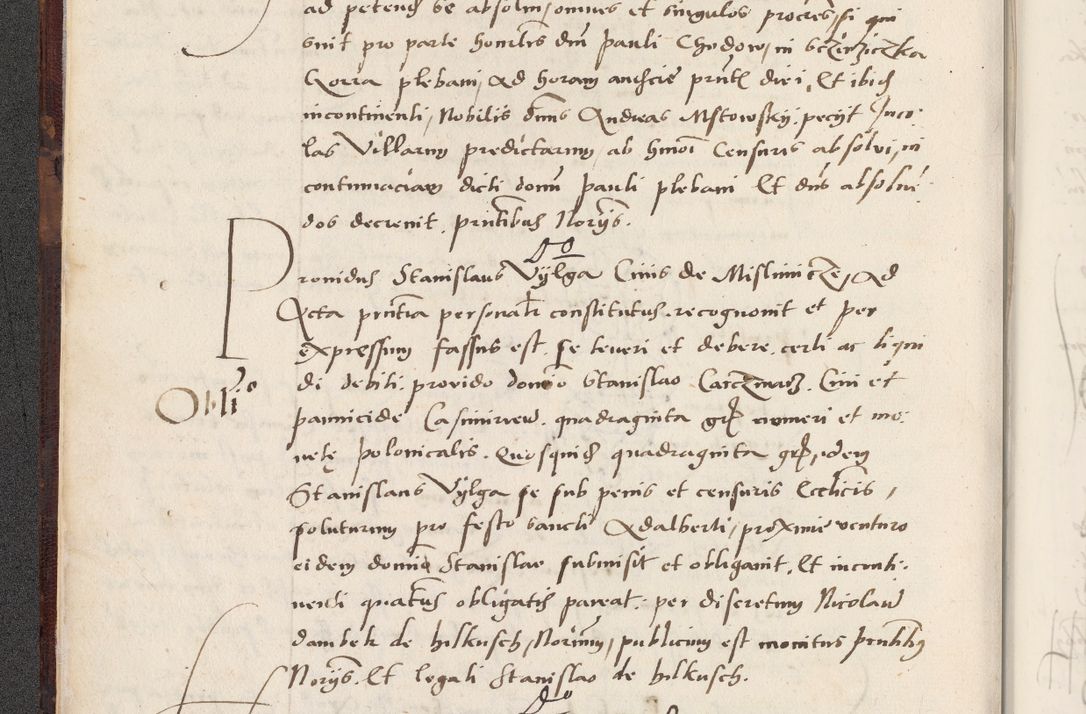 ad petend se absolvi, omnes et singulos procres, si qui
sunt pro parte honrlis dni pauli Chodow, in
Gorra plebani, Ad horam prntis diei, Et ibid
incontinenti, Nobilis dnus Andreas Mstowsky. pecyt Inco-
las Villarum predictarum, ab hmoi Censuris absolvi, in
contumaciam dicti domi pauli plebani Et dns absolve-
dos decrevit. prntibus Noryis.
Providus Stanislaus Vylga Civis de Mislimicze, Ad
Acta prntia personalr constitutus. recognovit et per
expressum fassus est. se teneri et debere. certi ac liqui
di debiti. provido domo Stanislao Carczmarz. Civi et
pannicide Casimiriew. quadraginta grz numeri et mo-
nete polonicalis. Quosquid quadraginta grz, idem
Stanislaus Vylga se sub penis et censuris Ecclicis,
soluturum pro festo sancti Adalberti, proxime venturo
eidem domino Stanislao submisit et obligavit. Et incumbi-
nendi quatus obligatis pareat. per discretum Nicolaum
dambek de hilkusch, Norium, publicum est monitus prntibus
Noryis. Et legali Stanislao de hilkusch.
Obli°